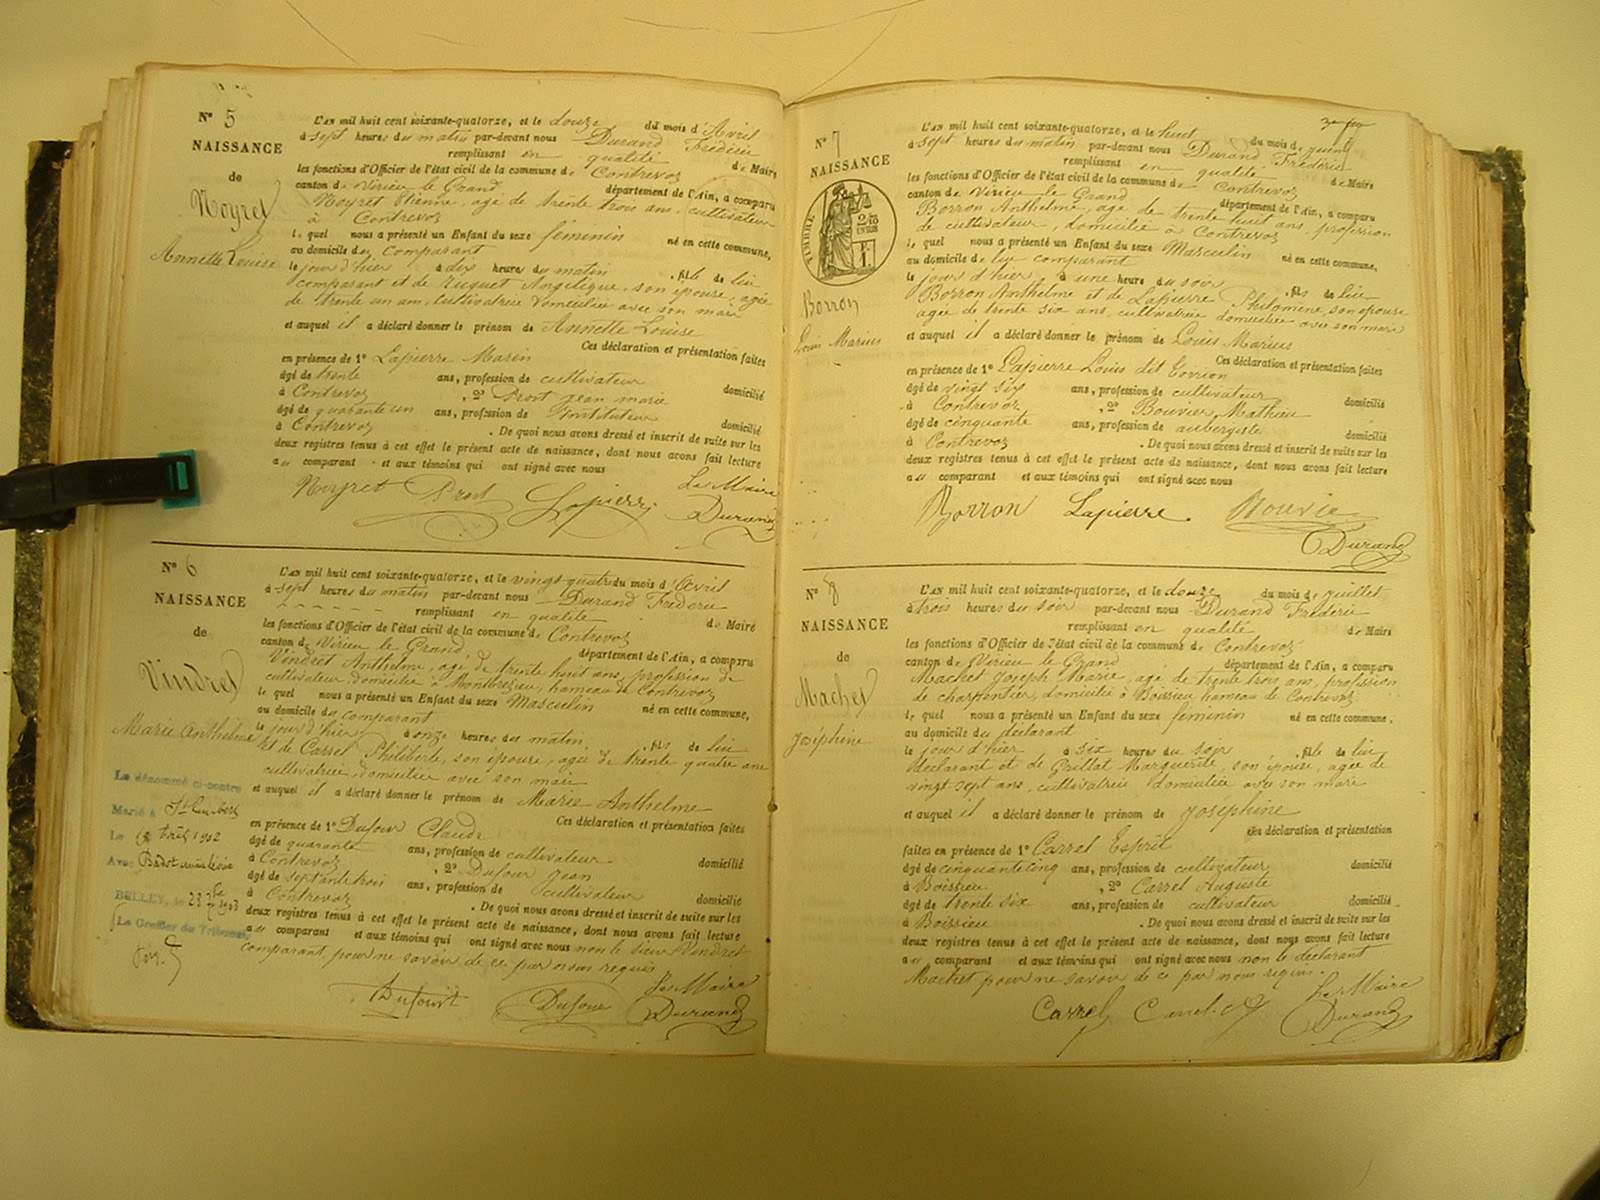 N° 5
NAISSANCE
de
Neyret
Annette Louise
L'AN mil huit cent soixante-quatorze, et le douze du mois d'Avril
à sept heures du matin par-devant nous Durand Frédéric
remplissant en qualité de Maire
les fonctions d'Officier de l'état civil de la commune de Contrevoz
canton de Virieu le Grand département de l'Ain, a comparu
Neyret Etienne, agé de trente trois ans, cultivateur
à Contrevoz
le quel nous a présenté un Enfant du sexe féminin né en cette commune,
au domicile du comparant
le jour d'hier à dix heures du matin, fille de lui
comparant et de Huguet Angélique, son épouse, agée
de trente un ans, cultivatrice domiciliée avec son mari
et auquel il a déclaré donner le prénom de Annette Louise
Ces déclaration et présentation faites
en présence de 1° Lapierre Marin
âgé de trente ans, profession de cultivateur domicilié
à Contrevoz, 2° Prost jean marie
âgé de quarante un ans, profession de Instituteur domicilié
à Contrevoz. De quoi nous avons dressé et inscrit de suite sur les
deux registres tenus à cet effet le présent acte de naissance, dont nous avons fait lecture
au comparant et aux témoins qui ont signé avec nous
Neyret Prost Lapierre Le Maire
Durand
N° 6
NAISSANCE
de
Vindret
Marie Anthelme
L'AN mil huit cent soixante-quatorze, et le vingt quatre du mois d'Avril
à sept heures du matin par-devant nous Durand Frédéric
remplissant en qualité de Maire
les fonctions d'Officier de l'état civil de la commune de Contrevoz
canton de Virieu le Grand département de l'Ain, a comparu
Vindret Anthelme, agé de trente huit ans, profession de
cultivateur, domicilié à Montbrezieu, hameau de Contrevoz
le quel nous a présenté un Enfant du sexe Masculin né en cette commune,
au domicile du comparant
le jour d'hier à onze heures du matin, fils de lui
et de Carrel Philiberte, son épouse, agée de trente quatre ans
cultivatrice, domiciliée avec son mari
et auquel il a déclaré donner le prénom de Marie Anthelme
Ces déclaration et présentation faites
en présence de 1° Dufour Claude
âgé de quarante ans, profession de cultivateur domicilié
à Contrevoz, 2° Dufour jean
âgé de septante trois ans, profession de cultivateur domicilié
à Contrevoz. De quoi nous avons dressé et inscrit de suite sur les
deux registres tenus à cet effet le présent acte de naissance, dont nous avons fait lecture
au comparant et aux témoins qui ont signé avec nous non le sieur Vindret
comparant, pour ne savoir de ce par nous requis
Le Maire
Dufour Dufour Durand
Le dénommé ci-contre
Marié à St Rambert
Le 1902
Avec
BELLEY, le 23 1903
Le Greffier du Tribunal,
N° 7
NAISSANCE
TIMBRE
Borron
Louis Marius
L'AN mil huit cent soixante-quatorze, et le huit du mois de
à sept heures du matin par-devant nous Durand Frédéric
remplissant en qualité de Maire
les fonctions d'Officier de l'état civil de la commune de Contrevoz
canton de Virieu le Grand département de l'Ain, a comparu
Borron Anthelme, age de trente huit ans, profession
de cultivateur, domicilié à Contrevoz
le quel nous a présenté un Enfant du sexe Masculin né en cette commune,
au domicile de lui comparant
le jour d'hier à une heure du soir, fils de lui
Borron Anthelme et de Lapierre Philomène, son épouse
agée de trente six ans, cultivatrice domiciliée avec son mari
et auquel il a déclaré donner le prénom de Louis Marius
Ces déclaration et présentation faites
en présence de 1° Lapierre Louis dit
âgé de vingt six ans, profession de cultivateur domicilié
à Contrevoz, 2° Bouvier Mathieu
âgé de cinquante ans, profession de aubergiste domicilié
à Contrevoz. De quoi nous avons dressé et inscrit de suite sur les
deux registres tenus à cet effet le présent acte de naissance, dont nous avons fait lecture
au comparant et aux témoins qui ont signé avec nous
Borron Lapierre Bouvier
Durand
N° 8
NAISSANCE
de
Machet
Joséphine
L'AN mil huit cent soixante-quatorze, et le douze du mois de juillet
à trois heures du soir par-devant nous Durand Frédéric
remplissant en qualité de Maire
les fonctions d'Officier de l'état civil de la commune de Contrevoz
canton de Virieu le Grand département de l'Ain, a comparu
Machet Joseph Marie, agé de trente trois ans, profession
de charpentier, domicilié à Boissieu hameau de Contrevoz
le quel nous a présenté un Enfant du sexe féminin né en cette commune,
au domicile du déclarant
le jour d'hier à six heures du soir, fille de lui
déclarant et de Grillat Marguerite, son épouse, agée de
vingt sept ans, cultivatrice, domiciliée avec son mari
et auquel il a déclaré donner le prénom de joséphine
Ces déclaration et présentation
faites en présence de 1° Carrel Esprit
âgé de cinquante cinq ans, profession de cultivateur domicilié
à Boissieu, 2° Carrel Auguste
âgé de trente six ans, profession de cultivateur domicilié
à Boissieu. De quoi nous avons dressé et inscrit de suite sur les
deux registres tenus à cet effet le présent acte de naissance, dont nous avons fait lecture
au comparant et aux témoins qui ont signé avec nous non le déclarant
Machet pour ne savoir de ce par nous requis.
Le Maire
Carrel Carrel Durand